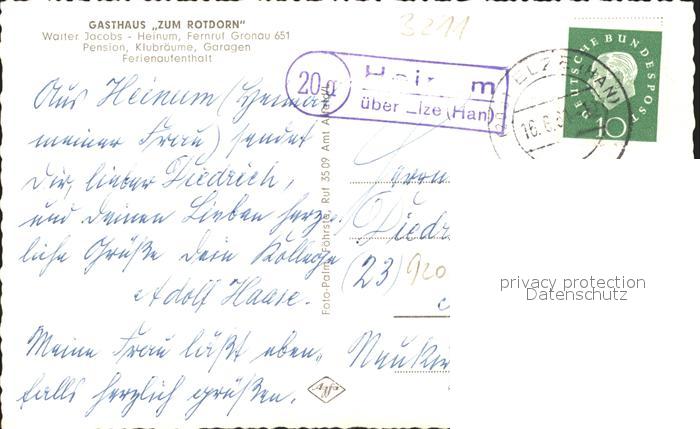 GASTHAUS „ZUM ROTDORN"
Walter Jacobs - Heinum, Fernruf Gronau 651
Pension, Klubräume, Garagen
Ferienaufenthalt
3211
20a
über Elze (Han)
ELZE (HAN)
DEUTSCHE BUNDESPOST
10
Aus Heinum (Heimat
meiner Frau) sendet
Dir, lieber Diedrich,
und deinen Lieben herz-
liche Grüße Dein Kollege
Adolf Haase.
Meine Frau läßt eben-
falls herzlich grüßen.
Herrn
Diedr
(23)
Foto-Palm, Föhrste, Ruf 3509 Amt Alfeld
Agfa
privacy protection
Datenschutz